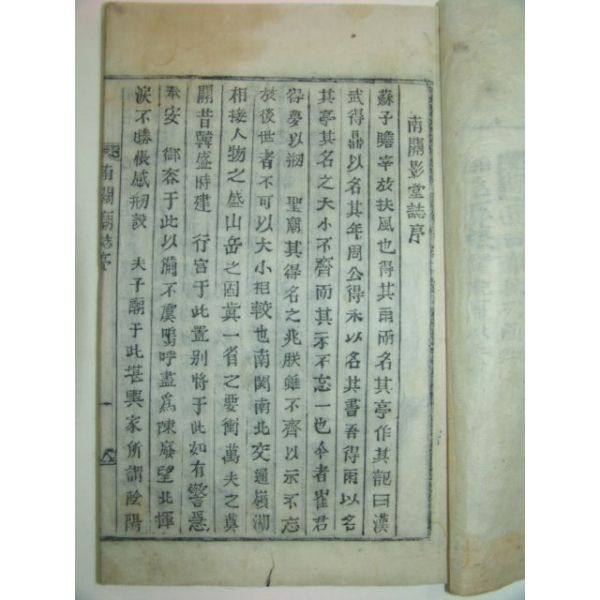 南關影堂誌序
蘇子瞻宰於扶風也得其雨兩名其亭作其記曰漢
武得鼎以名其年周公得禾以名其書吾得雨以名
其亭其名之大小不齊而其示不忘一也今者崔君
得夢以刱 聖廟其得名之兆朕雖不齊以示不忘
於後世者不可以大小相較也南関南北交通嶺湖
相接人物之盛山岳之固眞一省之要衝萬夫之莫
關昔韓盛時建 行宮于此置别將于此如有警急
奉安 御容于此以備不虞嗚呼盡爲陳廢望北揮
淚不勝悵感刱設 夫子廟于此堪輿家所謂陰陽
南關廟誌序
一